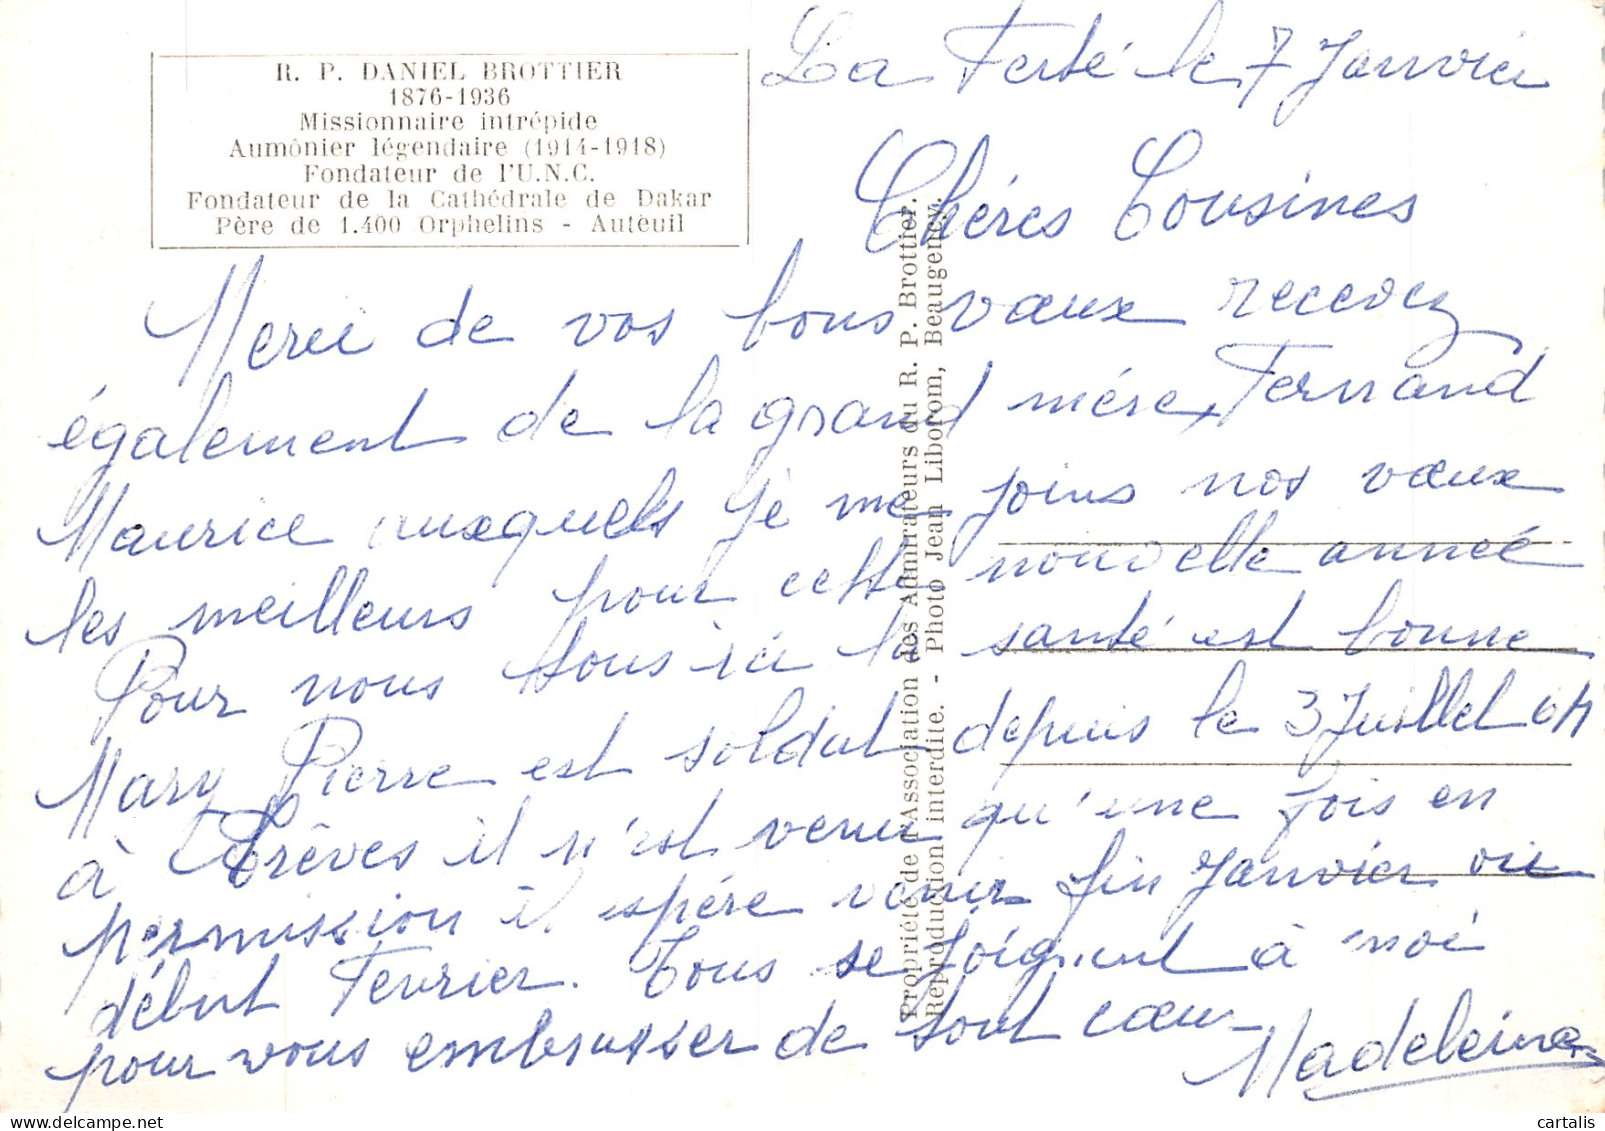 R. P. DANIEL BROTTIER
1876-1936
Missionnaire intrépide
Aumônier légendaire (1914-1918)
Fondateur de l'U.N.C.
Fondateur de la Cathédrale de Dakar
Père de 1.400 Orphelins - Auteuil
La Ferté le 7 Janvier
Chéres Cousines
Merci de vos bons vœux recevez
également de la grand mére, Fernand
Maurice auxquels je me joins nos vœux
les meilleurs pour cette nouvelle année
Pour nous tous ici la santé est bonne
Mary Pierre est soldat depuis le 3 Juillet 64
à Trêves il n'est venu qu'une fois en
permission il espére venir fin Janvier ou
début Fevrier. Tous se joignent à moi
pour vous embrasser de tout cœur
Madeleine
Propriété de l'Association des Admirateurs du R. P. Brottier.
Reproduction interdite. - Photo Jean Liborom, Beaugency.
cartalis